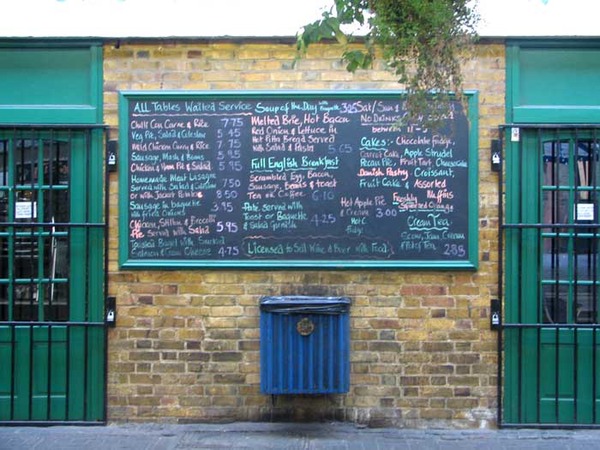 ALL Tables Waited Service
Chilli Con Carne & Rice 7.75
Veg Pie, Salad & Coleslaw 5.45
Mild Chicken Curry & Rice 7.75
Sausage, Mash & Beans 5.95
Chicken & Ham Pie & Salad 5.95
Homemade Meat Lasagne
Served with Salad & 7.50
or with Jacket 8.50
Sausage in Baguette 3.95
with fried Onions
Chicken, & Broccoli
Pie Served with Salad 5.95
Toasted Bagel with Smoked
Salmon & Cream Cheese 4.75
Soup of the Day with Baguette 3.95
Melted Brie, Hot Bacon
Red Onion & Lettuce in
Hot Pitta Bread Served
with Salad & 5.65
Full English Breakfast
Scrambled Egg, Bacon,
Sausage, Beans & toast
Tea or Coffee 6.10
Pate Served with
Toast or Baguette
& Salad Garnish 4.25
Hot Apple Pie
& Cream 3.00
Licensed to Sell Wine & Beer with Food
Sat/Sun &
No Drinks
between
Cakes:- Chocolate Fudge,
Carrot Cake, Apple Strudel
Pecan Pie, Fruit Tart, Cheesecake
Danish Pastry, Croissant,
Fruit Cake, Assorted
Muffins
Freshly
Squeezed Orange
Cream Tea
Scone, Jam, Cream
& Pot of Tea 3.85